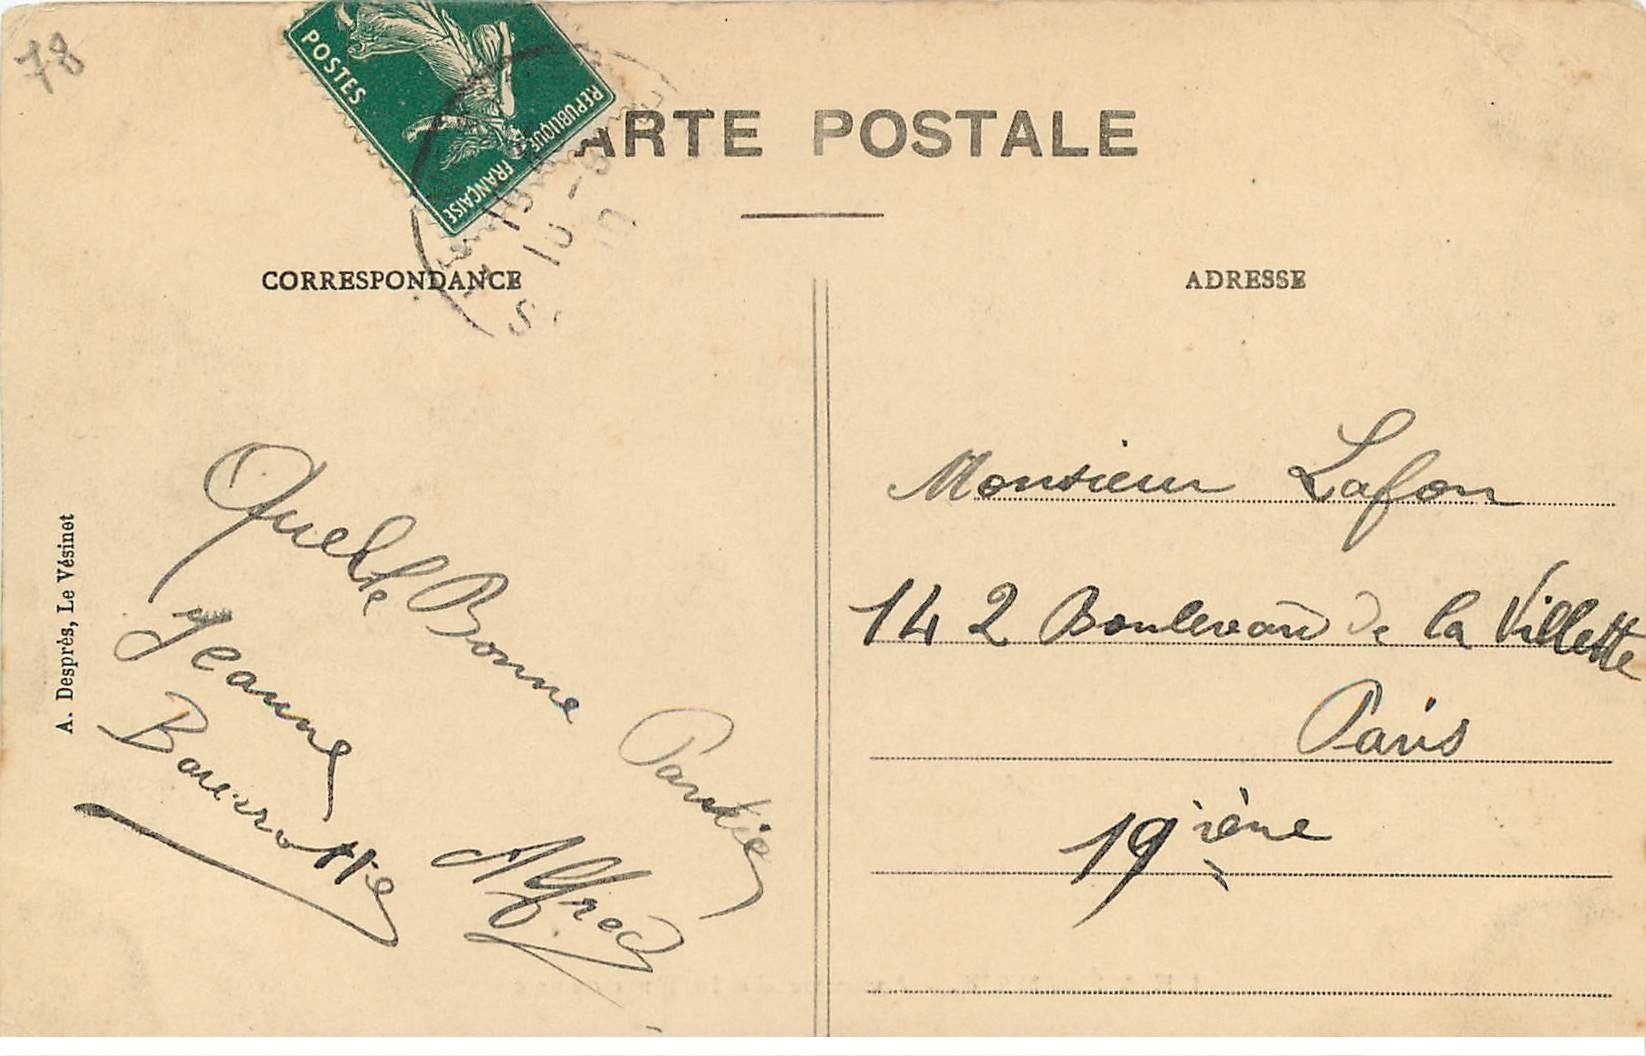 78
POSTES
REPUBLIQUE FRANÇAISE
ARTE POSTALE
CORRESPONDANCE
ADRESSE
A. Desprès, Le Vésinet
Quelle Bonne Partie
Jeanne
Alfred
Monsieur Lafon
142 Boulevard de la Villette
Paris
19ième